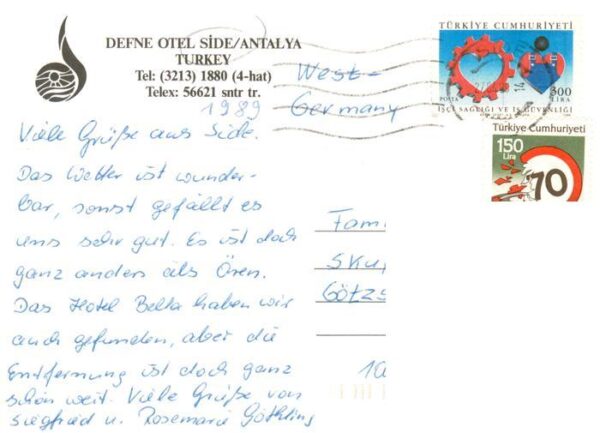 DEFNE OTEL SİDE/ANTALYA
TURKEY
Tel: (3213) 1880 (4-hat)
Telex: 56621 sntr tr.
1989
Viele Grüße aus Side.
Das Wetter ist wunder-
bar, sonst gefällt es
uns sehr gut. Es ist doch
ganz anders als Ören.
Das Hotel Belka haben wir
auch gefunden, aber die
Entfernung ist doch ganz
schön weit. Viele Grüße von
Siegfried u. Rosemarie
West-
Germany
TÜRKİYE CUMHURİYETİ
POSTA
300
LİRA
İŞÇİ SAĞLIĞI VE İŞ GÜVENLİĞİ
Türkiye Cumhuriyeti
150
Lira
70
Fam
Sku
Götzs
10